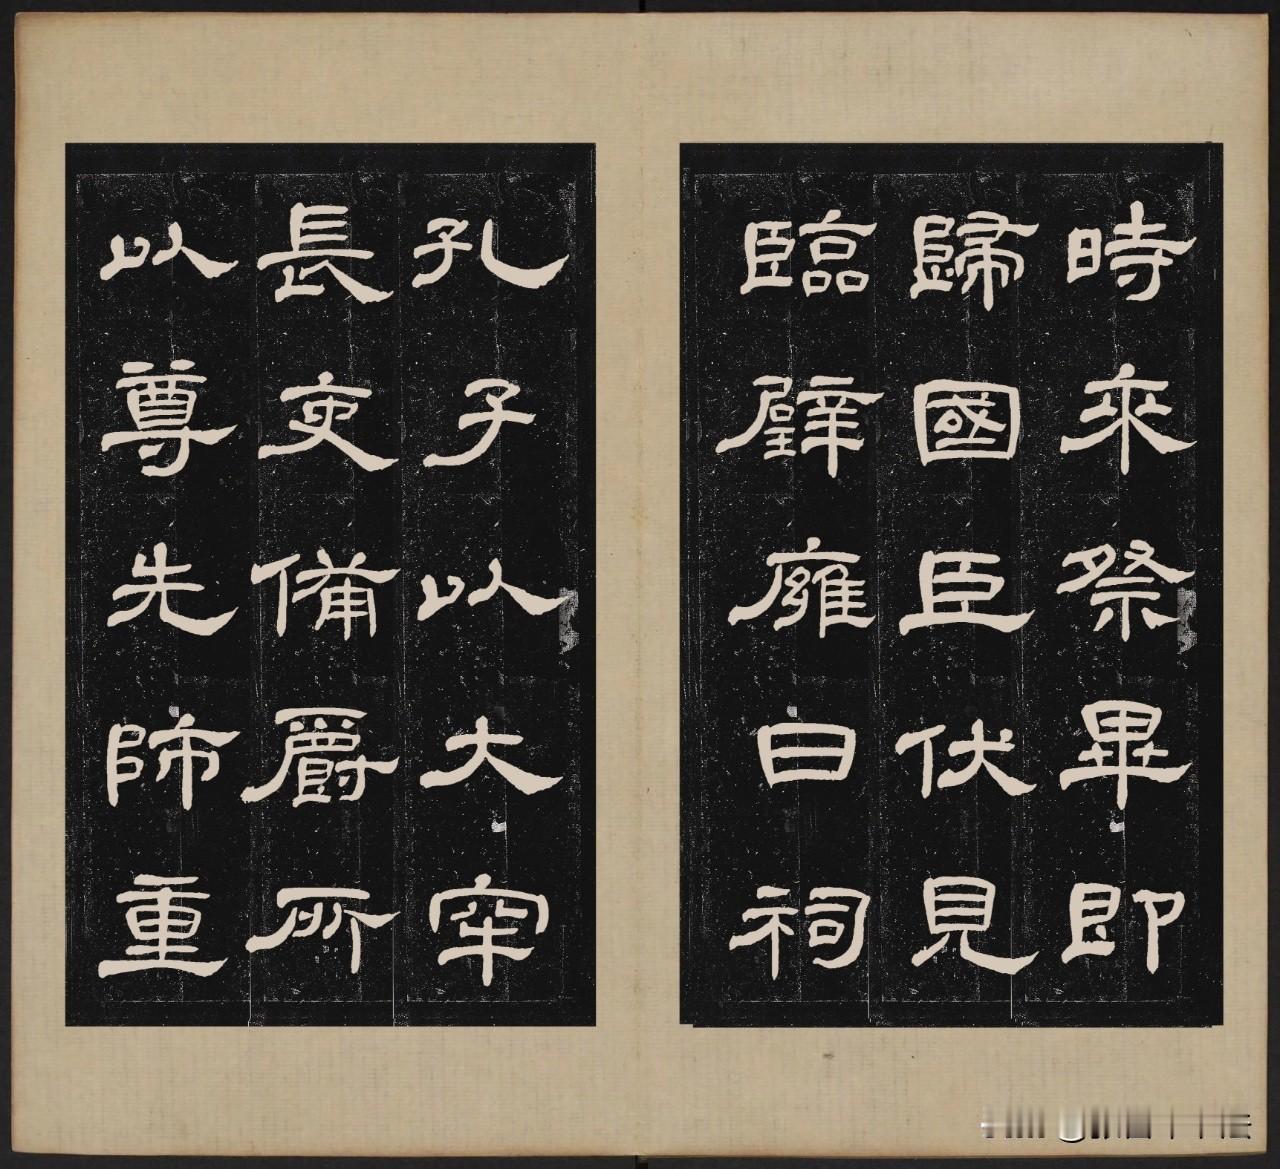 時來祭畢即
歸國臣伏見
臨辟雍日祠
孔子以大牢
長吏備爵所
以尊先師重